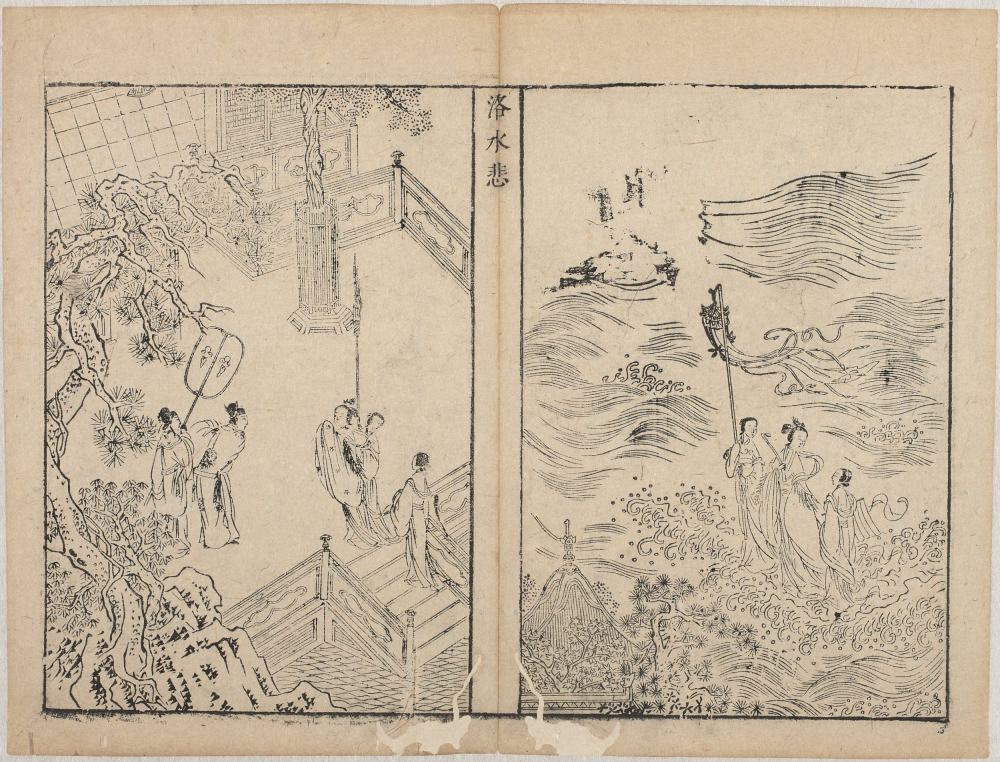 洛水悲